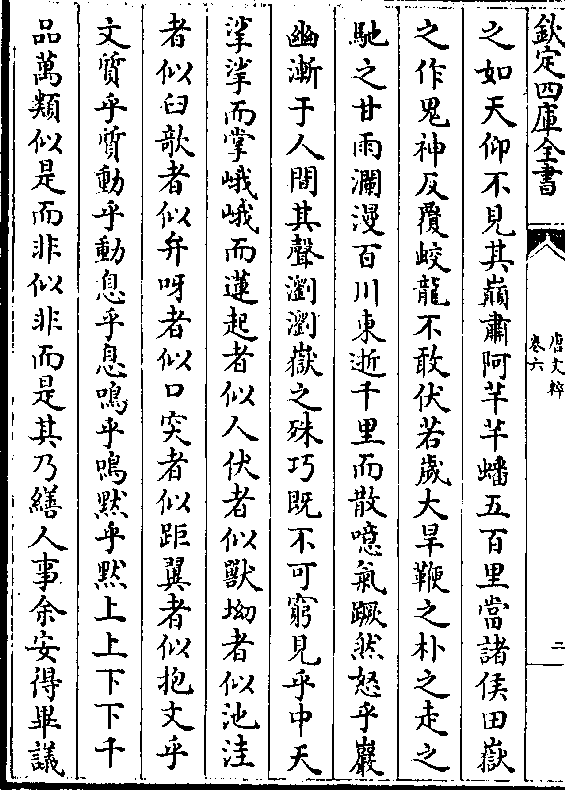 欽定四庫全書
唐文粹
卷六
二
之如天仰不見其巔肅阿芊芊蟠五百里當諸侯田嶽
之作鬼神反覆蛟龍不敢伏若歲大旱鞭之朴之走之
馳之甘雨瀾漫百川東逝千里而散噫氣蹶然怒乎巖
幽漸于人間其聲瀏瀏嶽之殊巧既不可窮見乎中天
挲挲而掌峨峨而蓮起者似人伏者似獸坳者似池洼
者似臼欹者似弁呀者似口突者似距翼者似抱文乎
文質乎質動乎動息乎息鳴乎鳴默乎默上上下下千
品萬類似是而非似非而是其乃繕人事余安得畢議